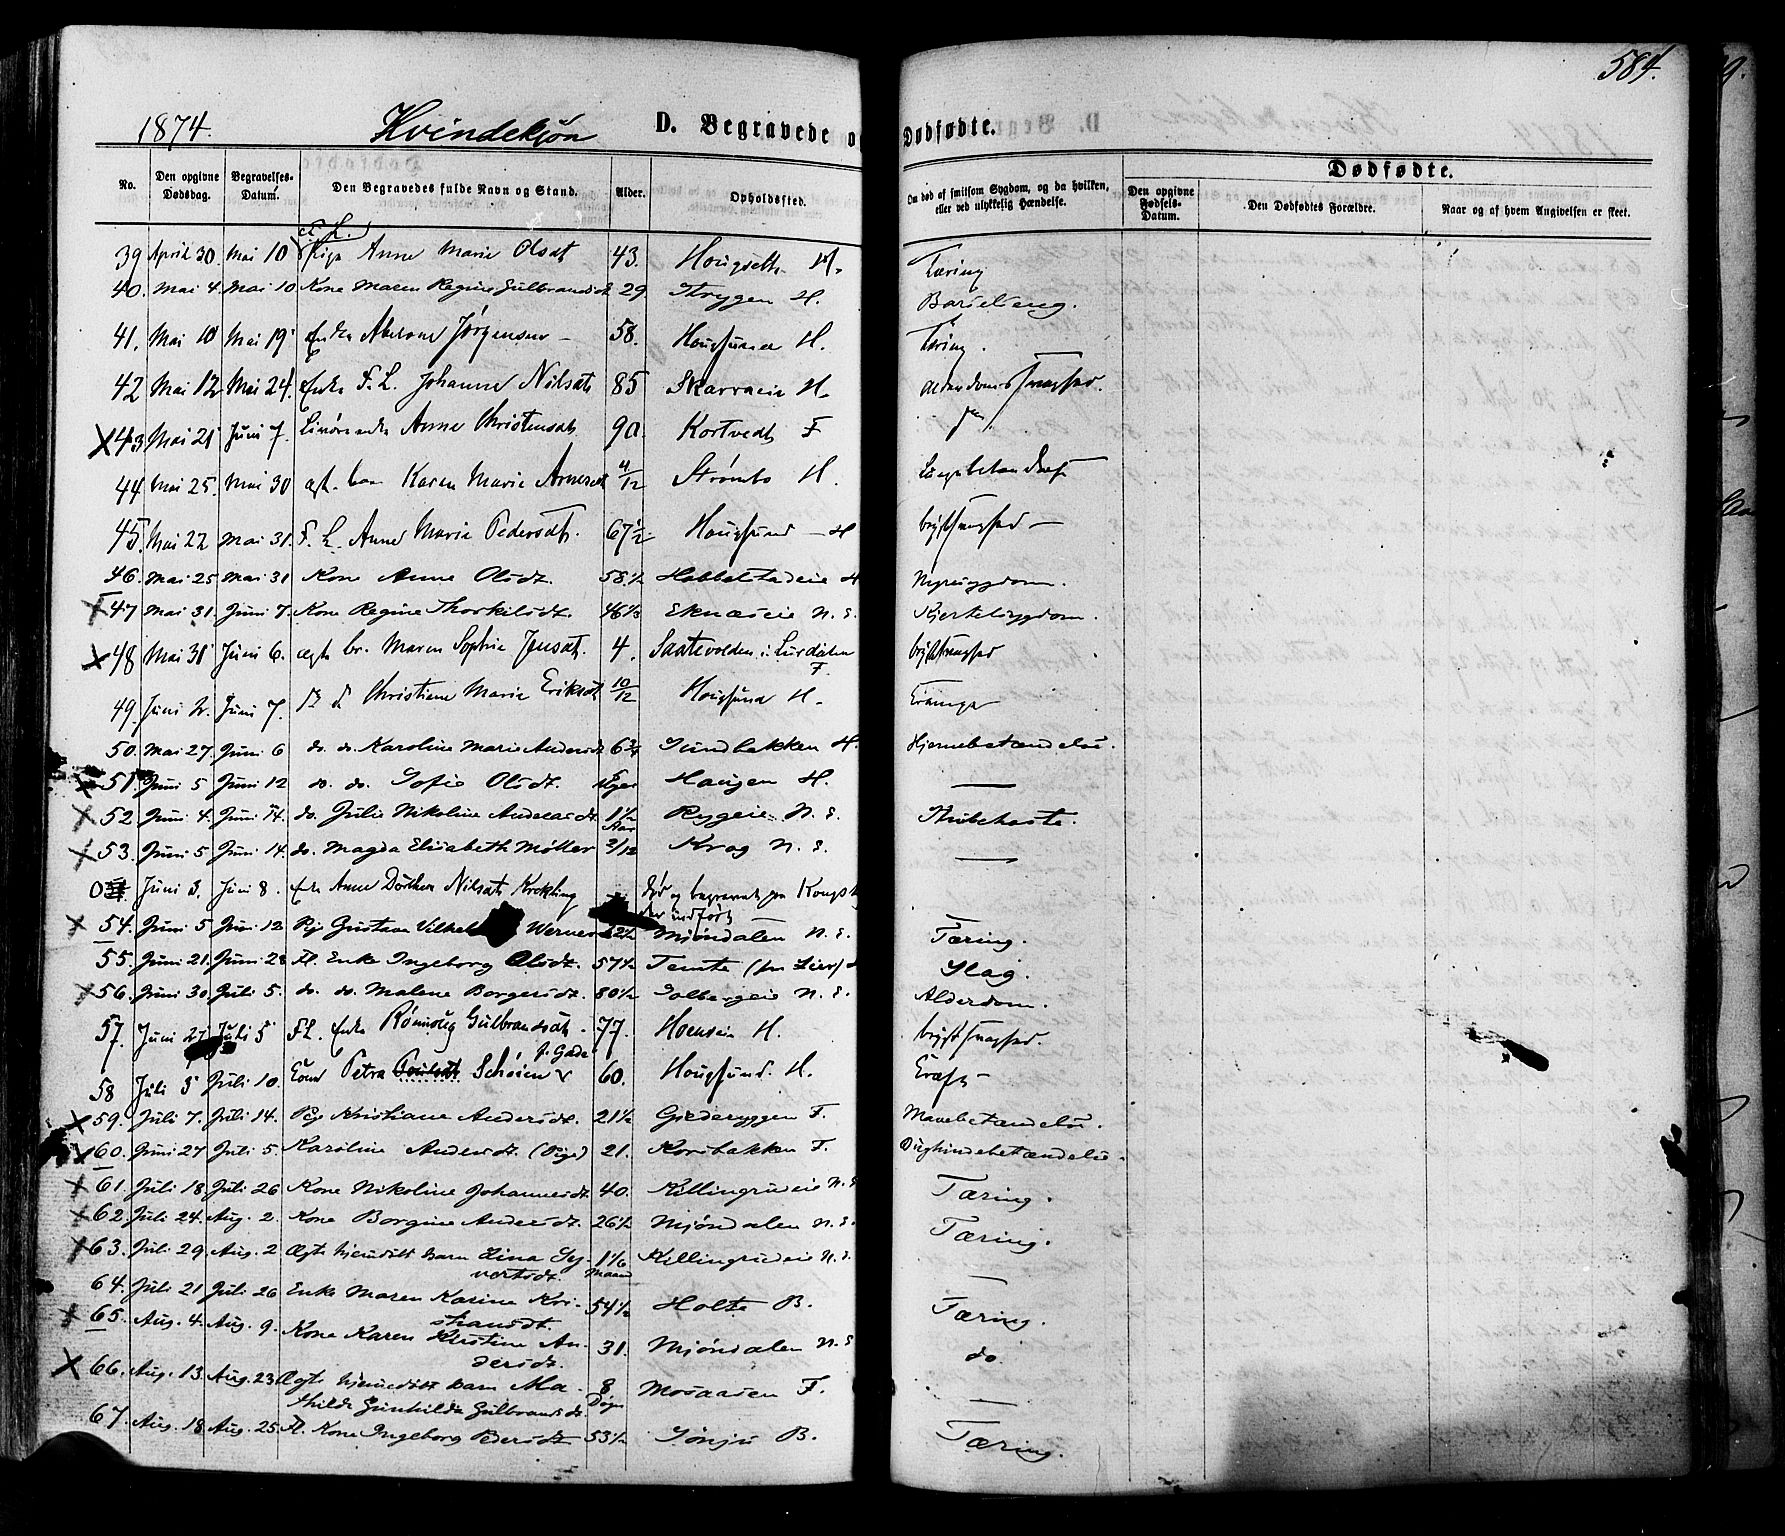 584.
1874. Kvindekjøn D. Begravede og Dødfødte.
No. Den opgivne Dødsdag. Begravelses-Datum. Den Begravedes fulde Navn og Stand. Alder. Opholdssted. Om død af smitsom Sygdom, og da hvilken, eller ved ulykkelig Hændelse. Dødfødte.
Den opgivne Fødsels-Datum. Den Dødfødtes Forældre. Naar og af hvem Angivelsen er skeet.
39 April 30. Mai 10 Pige Anne Marie Olsdt 43. Hougseth H. Tæring
40. Mai 4. Mai 10 Kone Maren Regine Gulbrandsdt 29 Strygen H. Barselseng.
41. Mai 10 Mai 19 Enke Jørgensen 58. Hougsund H. Tæring.
42 Mai 12 Mai 24. Enke F. L. Johanne Nilsdt 85 Skarraeie H. Alderdomssvaghed.
X 43 Mai 21 Juni 7. Anne Christensdt. 90. Kortvedt F
44 Mai 25. Mai 30 ægt. barn Karen Marie Arnesdt 4/12 Strømbo H.
45. Mai 22 Mai 31. F. L. Anne Marie Pedersdt. 67½ Hougsund - H brystsvaghed -
46. Mai 25 Mai 31 Kone Anne Olsdt. 58½ Hobbelstadeie H Nyresygdom.
X 47 Mai 31. Juni 7. Kone Regine Thorkilsdt. 46½ Eknæseie N. E. Kjertelsygdom.
X 48 Mai 31 Juni 6. ægte br. Maren Sophie Jensdt. 4. Saatevolden i Lurdalen F. brystsvaghed
49. Juni 2. Juni 7. Christine Marie Eriksdt 10/12 Hougsund H. Krampe
50. Mai 27. Juni 6 do. do. Karoline Marie Andersdt 6¾ Sundbakken H. Hjernebetændelse.
X 51 Juni 5 Juni 12 do. do. Sofie Olsdt. Haugen H. —
X 52. Juni 4. Juni 14. do. Julie Nikoline Andersdt. 1½ Aar Rygeie N. E. Strubehoste.
X 53. Juni 5 Juni 14. do. Magda Elisabeth Møller 2/12 Krog N. E. —
0 Juni 3. Juni 8. Enke Anne Dorthea Nilsdt Krekling død og begravet paa Kongsb
der indført
X 54. Juni 5 Juni 12 Pig Gustava Vilhel Werner 2½ Mjøndalen N. E. Tæring.
55. Juni 21. Juni 28 Fl. Enke Ingeborg Olsdt. 57½ Temte (fra Lier) H Slag.
X 56. Juni 30. Juli 5. do. do. Malene Borgersdt. 80½ Solbergeie N. E. Alderdom.
57. Juni 27 Juli 5 F. L. Enke Rønnaug Gulbrandsdt. 77. Hoenseie H. brystsvaghed.
58 Juli 3 Juli 10. Petra Poulsdt Schøien f. Gade 60. Hougsund. H. Kræft
X 59. Juli 7. Juli 14. Pige Kristiane Andersdt. 21½ Gjederyggen F. Mavebetændelse.
X 60. Juni 27 Juli 5. Karoline Andersdt. (Pige) 21. Korsbakken F. Bughindebetændelse.
X 61. Juli 18 Juli 26 Kone Nikoline Johannesdt. 40. Killingrudeie N. E Tæring.
X 62. Juli 24. Aug. 2. Kone Borgine Andersdt. 26½ Mjøndalen N. E. Tæring.
X 63. Juli 29. Aug. 2 Ægte hjemdøbt Barn Lina Sy-
vertsdt. 1½ Maaned Killingrudeie N. E. —
64. Juli 21 Juli 26 Enke Maren Karine Kri-
stiansdt. 54½ Holte B. Tæring.
X 65. Aug. 4. Aug. 9. Kone Karen Kirstine An-
dersdt. 31. Mjøndalen N. E do.
X 66. Aug. 13. Aug. 23. Ægte hjemdøbt Barn Ma-
thilde Gunhilda Gulbrandsdt. 8 Døgn Mosaasen F. —
67. Aug. 18 Aug. 25. Fl. Kone Ingeborg Pedersdt 53½ Sønju B. Tæring.